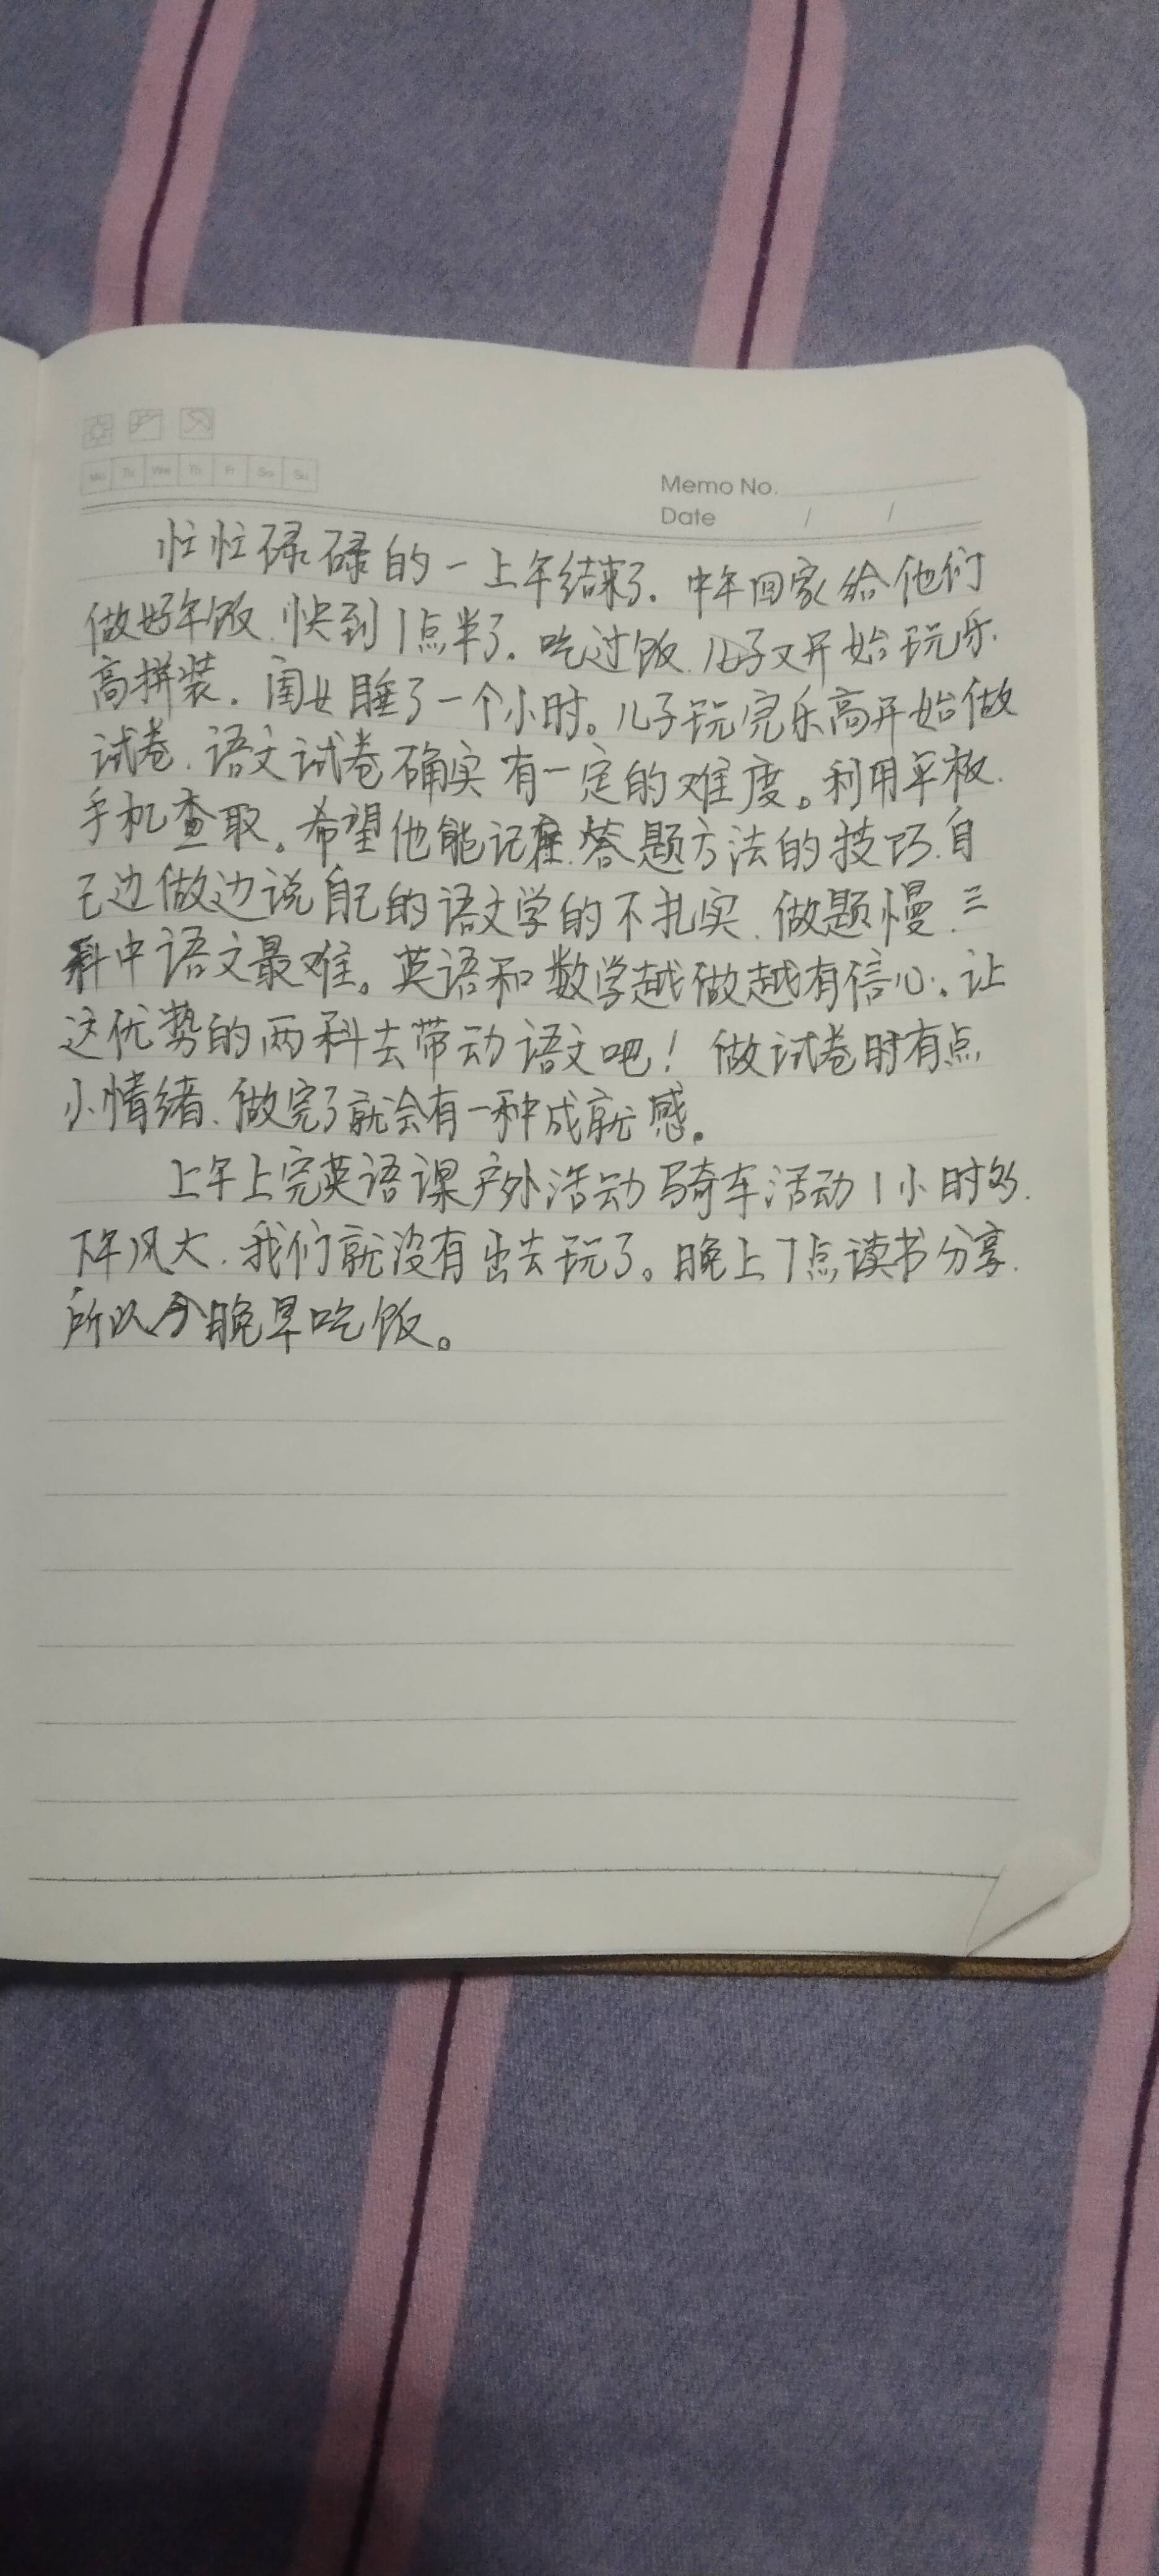 Mo Tu We Th Fr Sa Su
Memo No.
Date / /
忙忙碌碌的一上午结束了. 中午回家给他们
做好午饭.快到1点半了. 吃过饭.儿子又开始玩乐
高拼装. 闺女睡了一个小时。儿子玩完乐高开始做
试卷.语文试卷确实有一定的难度。利用平板.
手机查取。希望他能记住.答题方法的技巧.自
己边做边说自己的语文学的不扎实.做题慢.三
科中语文最难。英语和数学越做越有信心.让
这优势的两科去带动语文吧! 做试卷时有点
小情绪.做完了就会有一种成就感.
上午上完英语课户外活动骑车活动1小时多.
下午风大.我们就没有出去玩了。晚上7点读书分享.
所以今晚早吃饭。